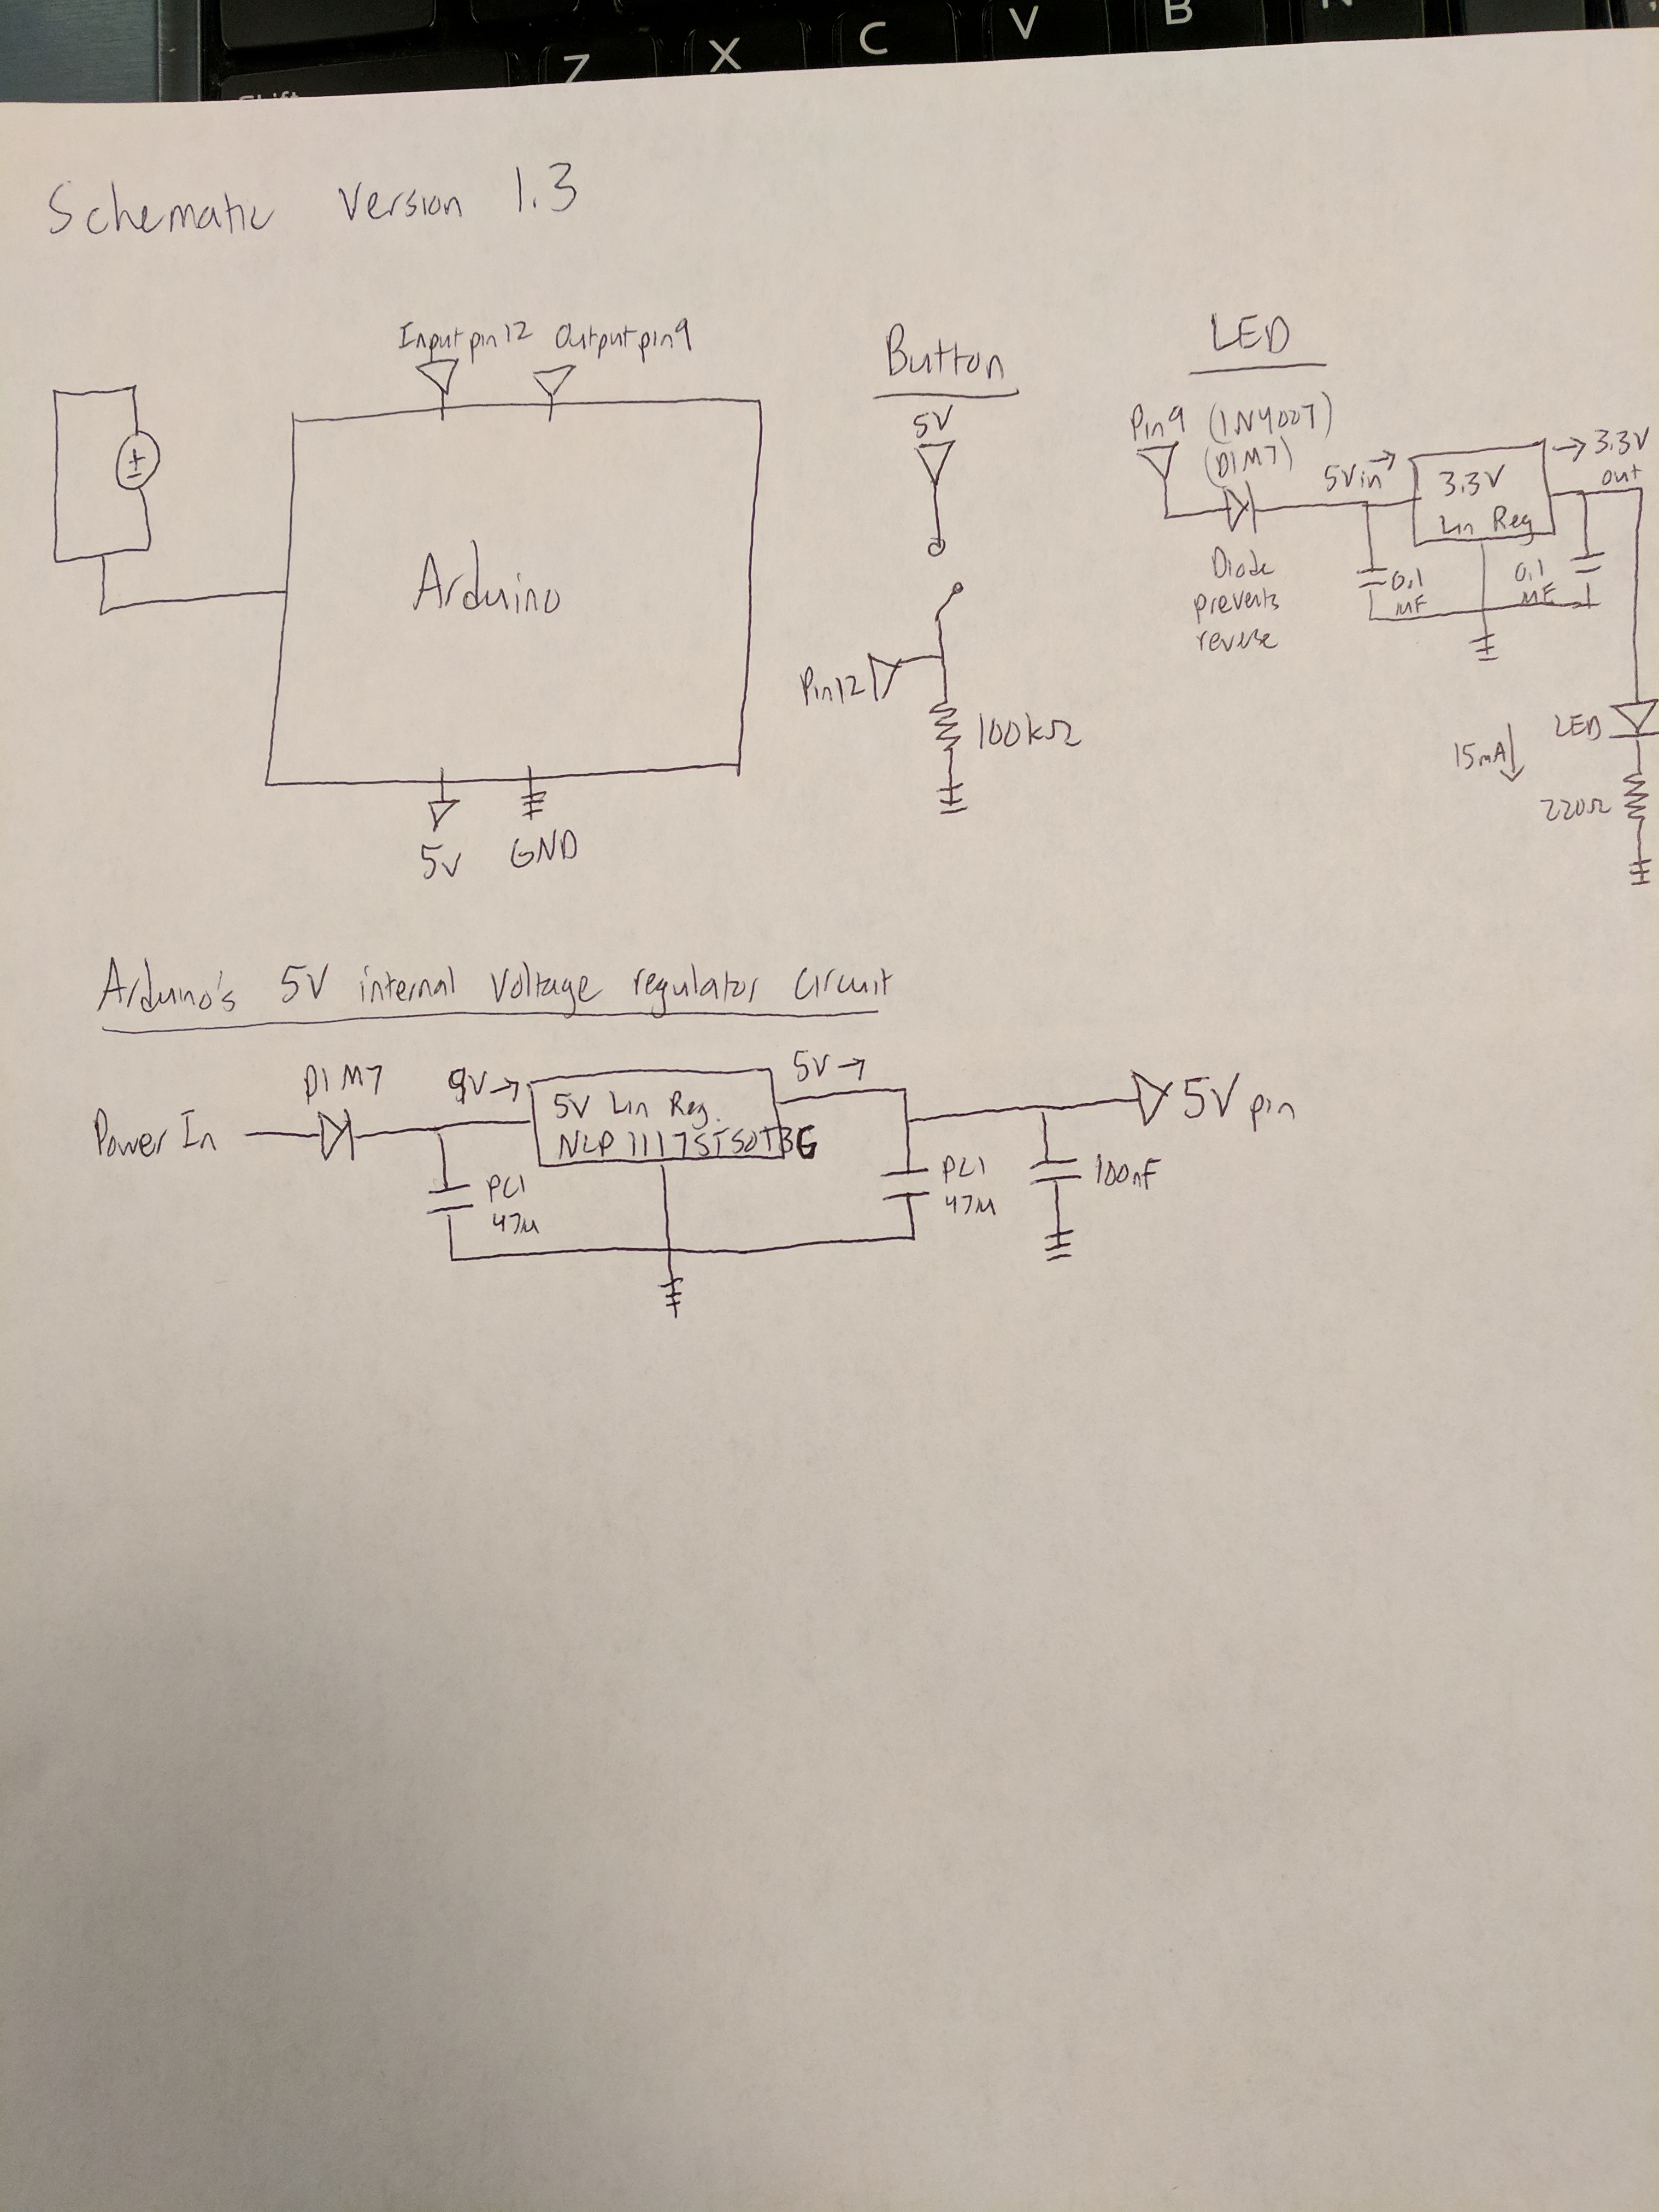 Shift Z X C V B N
Schematic Version 1.3
Input pin 12 Output pin 9
Arduino
5V GND
Button
5V
Pin 12
100kΩ
LED
Pin 9 (1N4007)
(D1M7)
5V in →
3.3V
Lin Reg
→ 3.3V
out
Diode
prevents
reverse
0.1
MF
0.1
MF
LED
15mA ↓
220Ω
Arduino's 5V internal Voltage regulator Circuit
D1 M7
Power In
9V →
5V Lin Reg.
NCP1117ST50T3G
5V →
5V pin
PC1
47M
PC1
47M
100nF